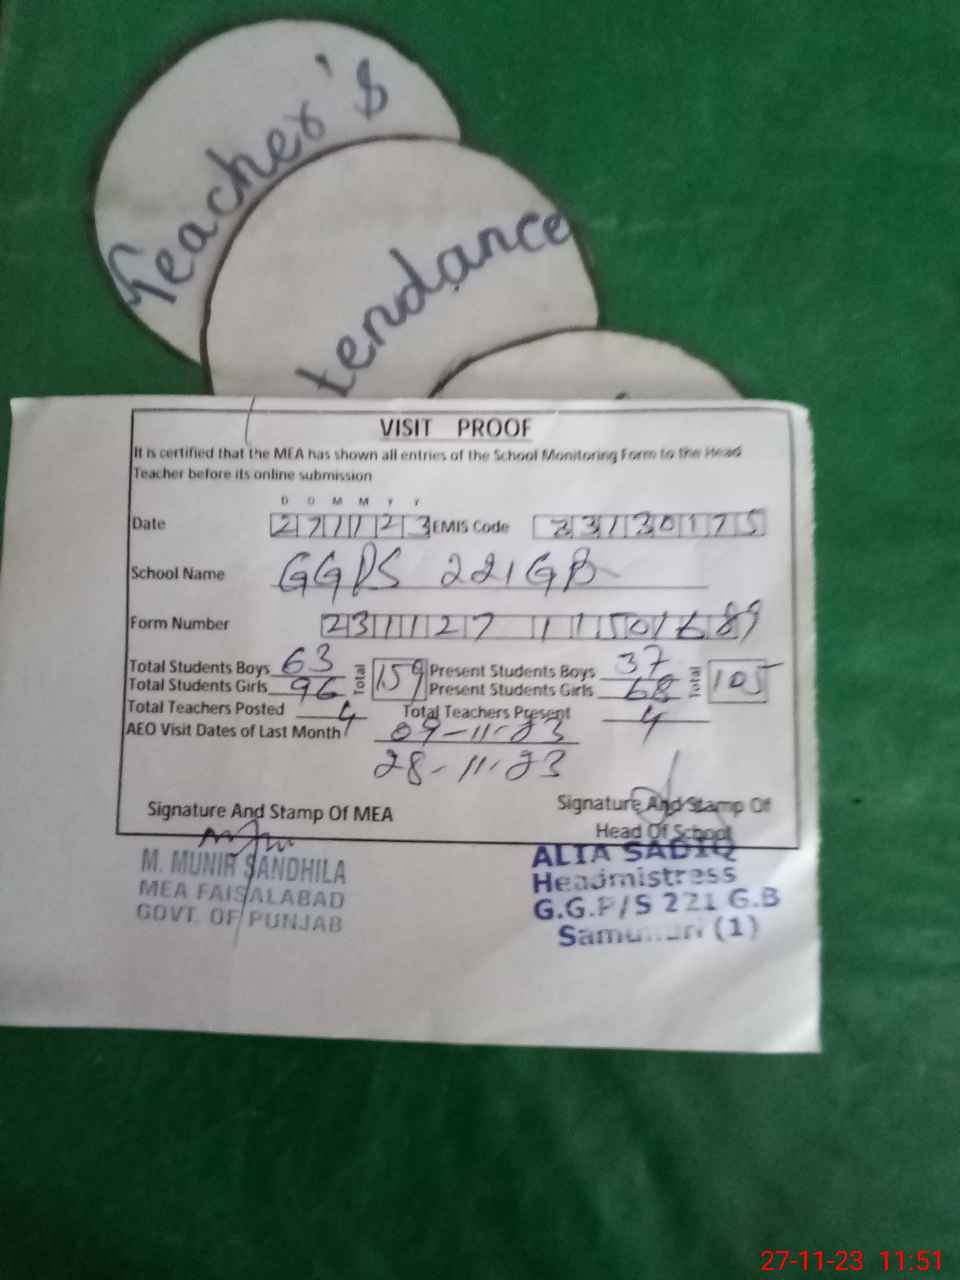 Teacher's
tendance
VISIT PROOF
It is certified that the MEA has shown all entries of the School Monitoring Form to the Head
Teacher before its online submission
D D M M Y Y
Date 271123 EMIS Code 23130175
School Name GGPS 221 GB
Form Number 231127 11501689
Total Students Boys 63 Total 159 Present Students Boys 37 Total 105
Total Students Girls 96 Present Students Girls 68
Total Teachers Posted 4 Total Teachers Present 4
AEO Visit Dates of Last Month 09-11-23
28-11-23
Signature And Stamp Of MEA Signature And Stamp Of
Head Of School
M. MUNIR SANDHILA
MEA FAISALABAD
GOVT. OF PUNJAB
ALIA SADIQ
Headmistress
G.G.P/S 221 G.B
(1)
27-11-23 11:51